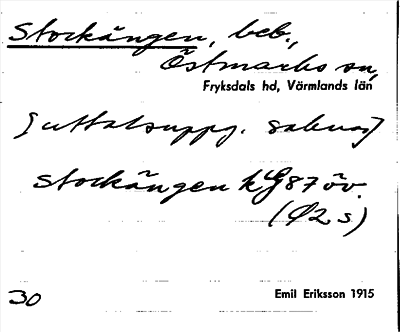 Stockängen, beb.,
Östmarks sn,
Fryksdals hd, Värmlands län
[uttalsuppg. saknas]
Stockängen kG87öv.
(Ø2s)
30
Emil Eriksson 1915